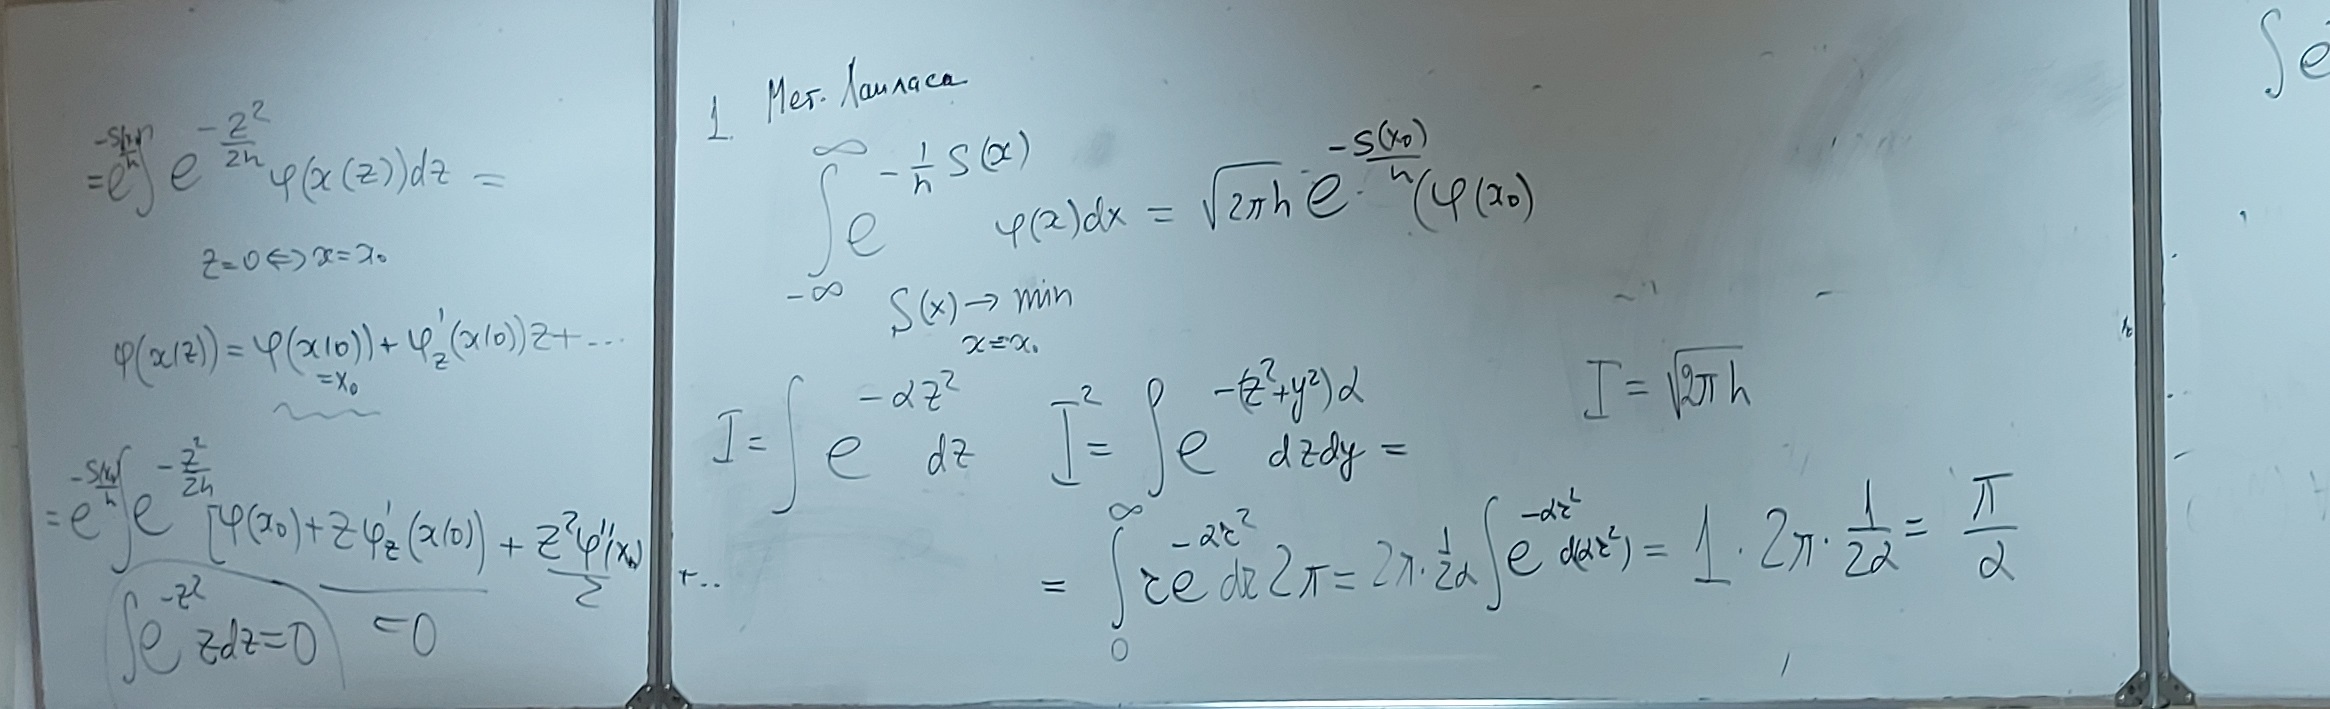 = e^{-S(x_0)/h} ∫ e^{-z²/2h} φ(x(z))dz =
z=0 ⇔ x=x₀
φ(x(z)) = φ(x(0)) + φ'_z(x(0))z + ...
=x₀
= e^{-S(x_0)/h} ∫ e^{-z²/2h} [φ(x₀) + zφ'_z(x(0)) + z²φ''(x₀)/2 + ...
∫ e^{-z²} zdz=0 =0
1. Мет. Лапласа
∫_{-∞}^{∞} e^{-\frac{1}{h}S(x)} φ(x)dx = √(2πh) e^{-S(x₀)/h} (φ(x₀)
S(x) → min
x=x₀
I = ∫ e^{-αz²} dz I² = ∫ e^{-(z²+y²)α} dzdy = I = √(2πh)
= ∫_0^∞ re^{-αr²} dr 2π = 2π·\frac{1}{2α} ∫ e^{-αr²} d(αr²) = 1·2π·\frac{1}{2α} = \frac{π}{α}
∫ e